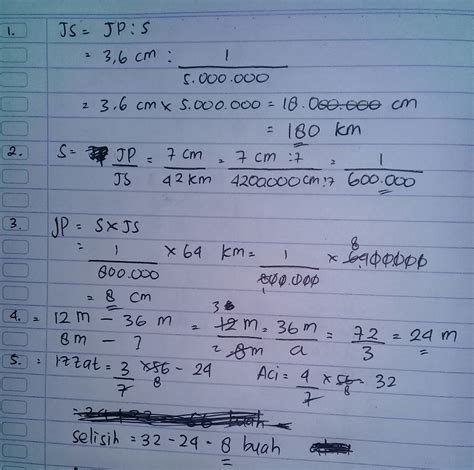 1. JS = JP : S
= 3,6 cm : 1/5.000.000
= 3,6 cm x 5.000.000 = 18.000.000 cm
= 180 km
2. S = JP/JS = 7 cm/42 km = 7 cm :7/4200000 cm :7 = 1/600.000
3. JP = S x JS
= 1/800.000 x 64 km = 1/800.000 x 6400000 8
= 8 cm
4. = 12 m - 36 m = 3 12 m/2 8 m = 36 m/a = 72/3 = 24 m
8 m - ?
5. = Izzat = 3/7 x 56 8 - 24 Aci = 4/7 x 56 8 = 32
selisih = 32 - 24 - 8 buah